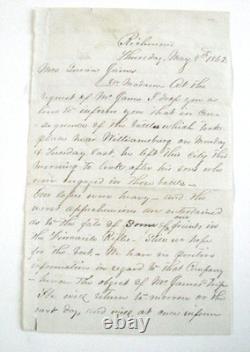 Richmond
Thursday May 8th 1862
Mrs Susan Gaines
Dr Madam At the
request of Mr Gaines I drop you a
line to inform you that in con-
sequence of the battle which took
place near Williamsburg on Monday
& Tuesday last he left this city this
morning to look after his sons who
were engaged in those battles
Our loss was heavy and the
worst apprehensions are entertained
as to the fate of some of our friends
in the Rifles. Still we hope
for the best. We have no positive
information in regard to that Company
hence the object of Mr Gaines trip
He will return to morrow or the
next day, and will at once inform